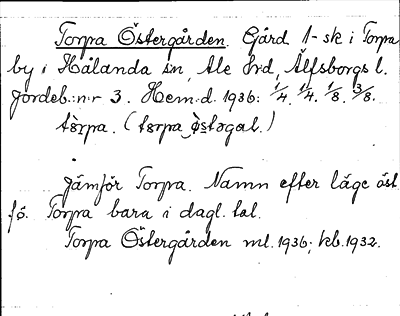 Torpa Östergården. Gård 1-sk i Torpa
by i Hålanda sn, Ale hrd, Älfsborgs l.
Jordeb.:n:r 3. Hem.d. 1936: 1/4. 1/4. 1/8. 3/8.
tòrpa. (tòrpa östəgaḷ.)
Jämför Torpa. Namn efter läge öst
fö. Torpa bara i dagl. tal.
Torpa Östergården ml. 1936; kb. 1932.